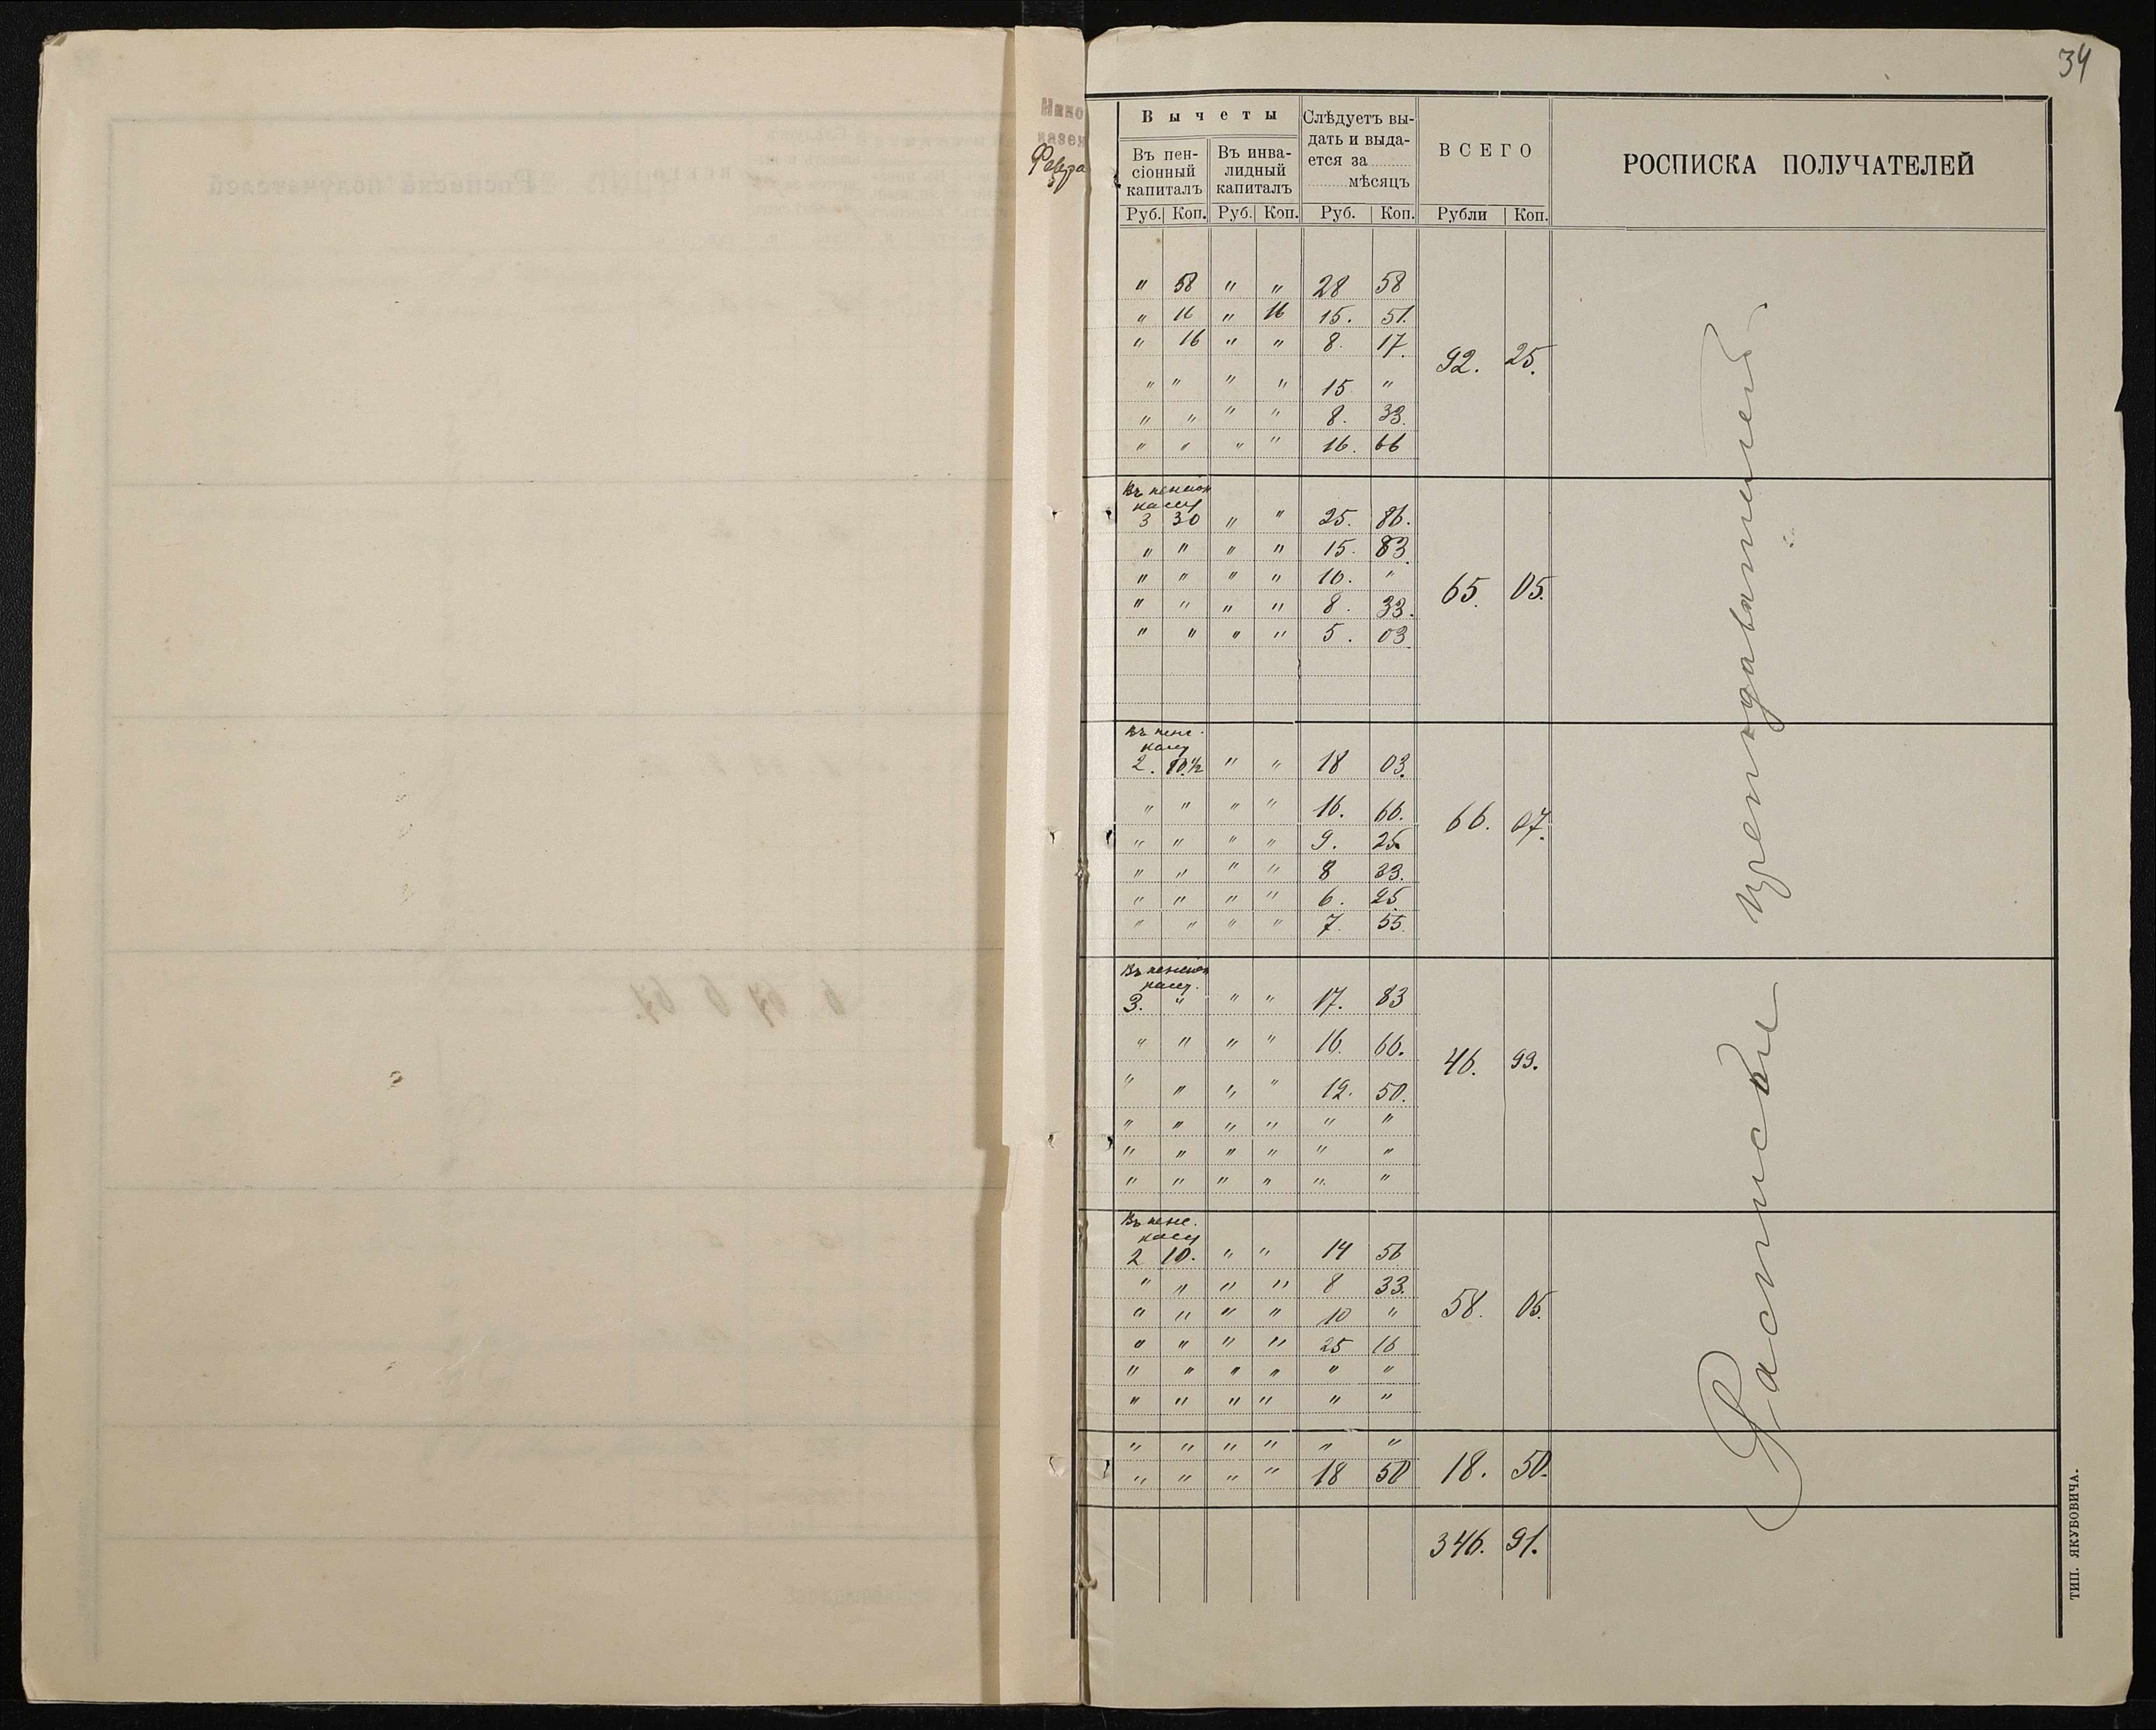 34
Нико
казен
Февра
Вычеты
Въ пен-
сіонный
капиталъ
Въ инва-
лидный
капиталъ
Слѣдуетъ вы-
дать и выда-
ется за
мѣсяцъ
ВСЕГО
РОСПИСКА ПОЛУЧАТЕЛЕЙ
Руб. Коп. Руб. Коп. Руб. Коп. Рубли Коп.
" 58 " " 28 58
" 16 " 16 15. 51.
" 16 " " 8. 17.
92. 25.
" " " " 15 "
" " " " 8. 33.
" " " " 16. 66
Въ пенсіон
кассу
3 30 " " 25. 86.
" " " " 15. 83
" " " " 10. "
65. 05.
" " " " 8. 33.
" " " " 5. 03
Въ пенс.
кассу
2. 10.½ " " 18 03.
" " " " 16. 66.
66. 07.
" " " " 9. 25.
" " " " 8 33.
" " " " 6. 25.
" " " " 7. 55.
Въ пенсіон
кассу.
3. " " " 17. 83
" " " " 16. 66.
46. 99.
" " " " 12. 50.
" " " " " "
" " " " " "
" " " " " "
Въ пенс.
кассу
2 10. " " 14 56
" " " " 8 33.
" " " " 10 "
58. 05.
" " " " 25 16
" " " " " "
" " " " " "
" " " " " "
" " " " 18 50 18. 50.
346. 91.
Расписки преподавателей
ТИП. ЯКУБОВИЧА.